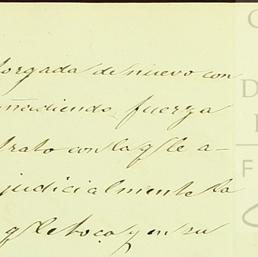 torgada de nuevo con
diendo fuerza
trato con la q̃ le a-
judicialmente la
q̃ le toca y en su